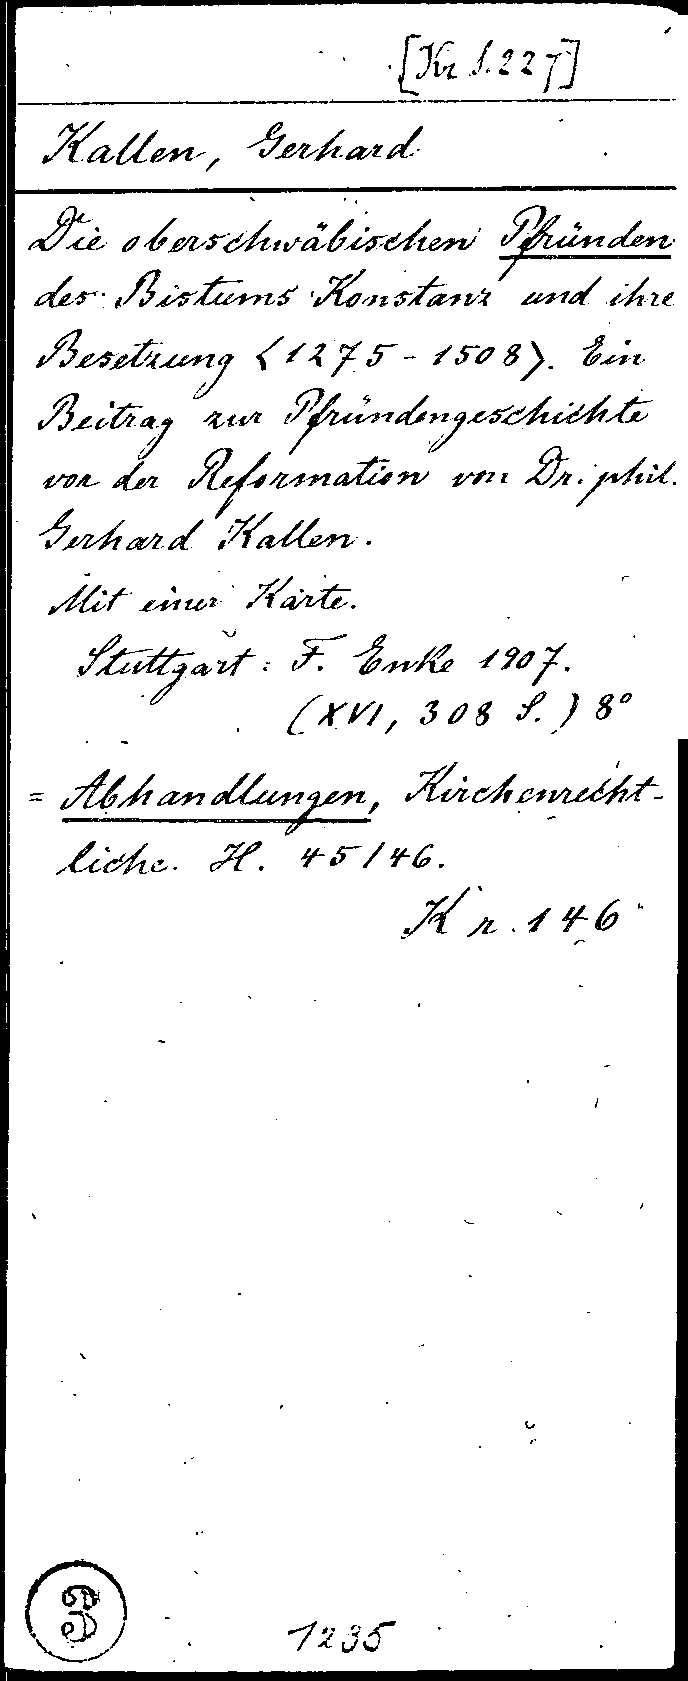 [Kr S. 227]
Kallen, Gerhard
Die oberschwäbischen Pfründen
des Bistums Konstanz und ihre
Besetzung <1275-1508>. Ein
Beitrag zur Pfründengeschichte
vor der Reformation von Dr. phil.
Gerhard Kallen.
Mit einer Karte.
Stuttgart: F. Enke 1907.
(XVI, 308 S.) 8°
= Abhandlungen, Kirchenrecht-
liche. H. 45/46.
Kr. 146
3
1235